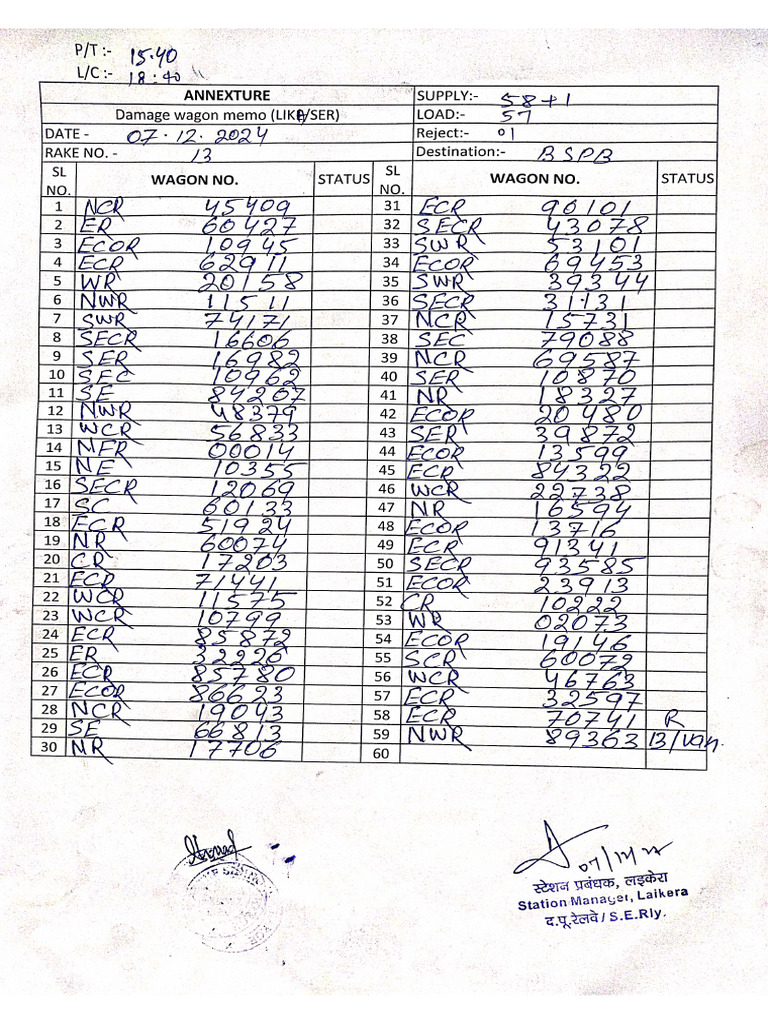 P/T :- 15.40
L/C :- 18:40
ANNEXTURE SUPPLY:- 58+1
Damage wagon memo (LIKA/SER) LOAD:- 57
DATE - 07.12.2024 Reject:- 01
RAKE NO. - 13 Destination:- BSPB
SL NO. WAGON NO. STATUS SL NO. WAGON NO. STATUS
1 NCR 45409 31 ECR 90101
2 ER 60427 32 SECR 43078
3 ECOR 10945 33 SWR 53101
4 ECR 62911 34 ECOR 69453
5 WR 20158 35 SWR 39344
6 NWR 11511 36 SECR 31131
7 SWR 74171 37 NCR 15731
8 SECR 16606 38 SEC 79088
9 SER 16982 39 NCR 69587
10 SEC 10962 40 SER 10870
11 SE 84207 41 NR 18327
12 NWR 48379 42 ECOR 20480
13 WCR 56833 43 SER 39872
14 NFR 00014 44 ECOR 13599
15 NE 10355 45 ECR 84322
16 SECR 12069 46 WCR 22738
17 SC 60133 47 NR 16594
18 ECR 51924 48 ECOR 13716
19 NR 60074 49 ECR 91341
20 CR 17203 50 SECR 93585
21 ECR 71441 51 ECOR 23913
22 WCR 11575 52 CR 10222
23 WCR 10799 53 WR 02073
24 ECR 85872 54 ECOR 19146
25 ER 32226 55 SCR 60072
26 ECR 85780 56 WCR 46763
27 ECOR 86623 57 ECR 32597
28 NCR 19043 58 ECR 70741 R
29 SE 66813 59 NWR 89363 B/Van.
30 NR 17706 60
स्टेशन प्रबंधक, लइकेरा
Station Manager, Laikera
द.पू.रेलवे / S.E.Rly.